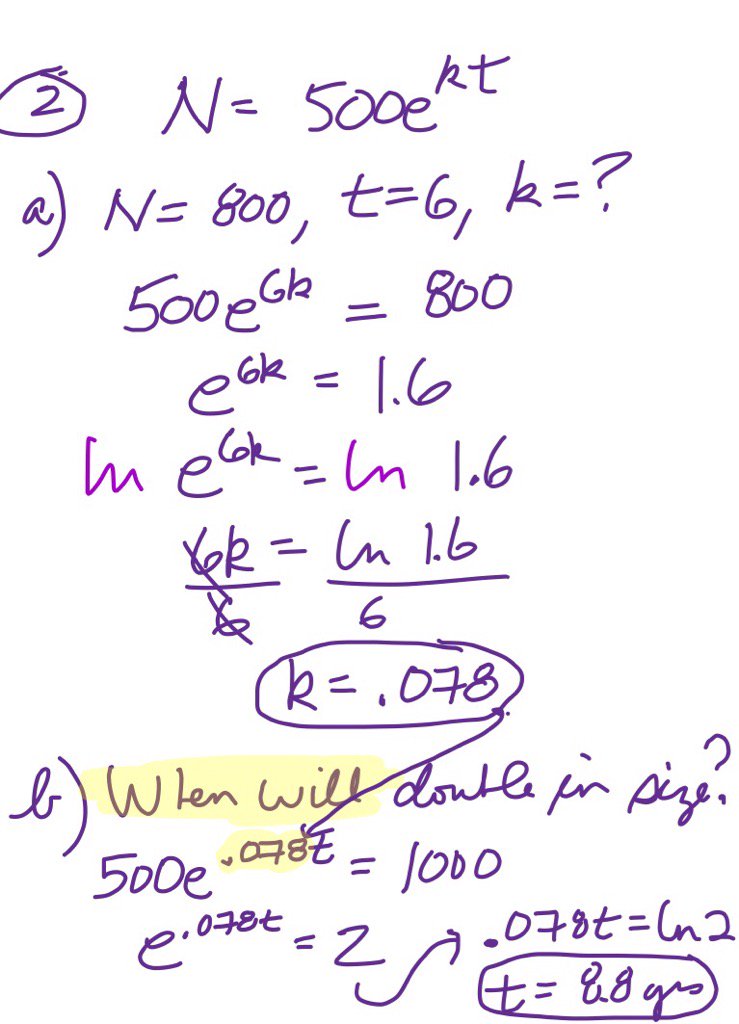 2 N = 500e^kt
a) N = 800, t=6, k=?
500e^6k = 800
e^6k = 1.6
ln e^6k = ln 1.6
6k = ln 1.6
6 6
k = .078
b) When will double in size?
500e^.078t = 1000
e^.078t = 2 .078t = ln 2
t = 8.8 yrs